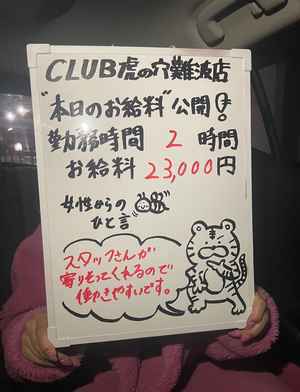 CLUB虎の穴難波店
"本日のお給料"公開!
勤務時間 2 時間
お給料 23,000円
女性からの
ひと言
スタッフさんが
寄りそってくれるので
働きやすいです。